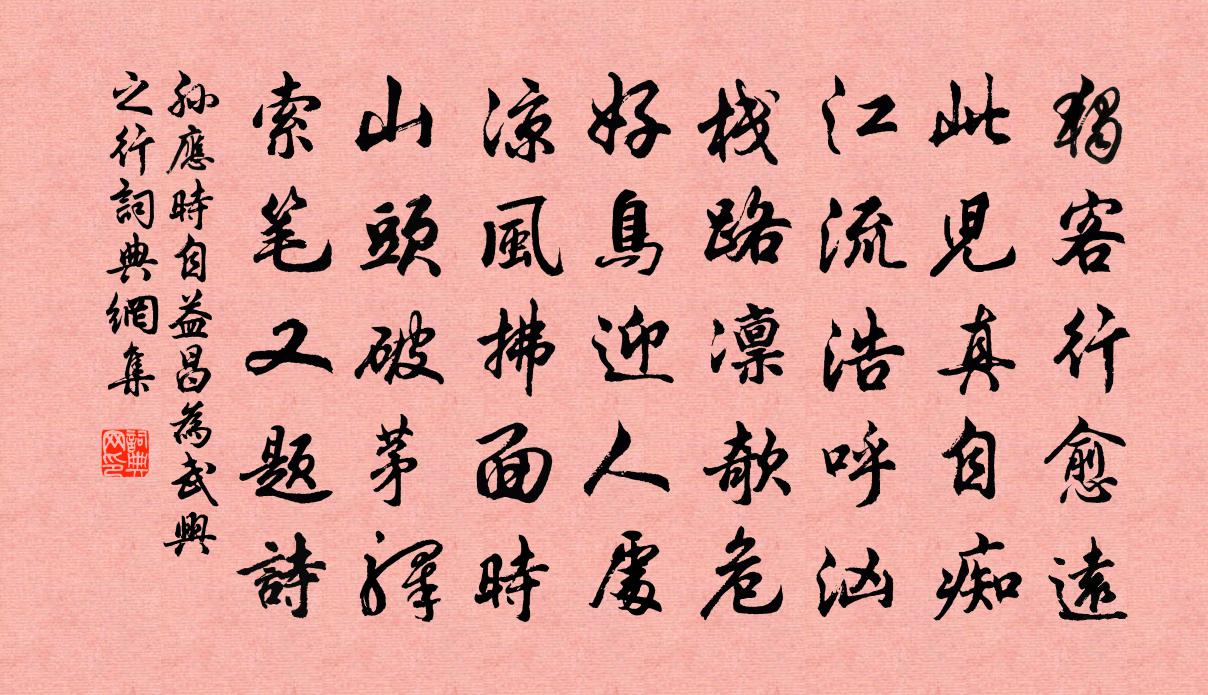 獨客行愈遠
此兒真自痴
江流浩呼洶
栈路凛欹危
好鳥迎人處
凉風拂面時
山頭破茅驛
索笔又题詩
孫應時自益昌為武興
之行詞典網集
詞典
网印